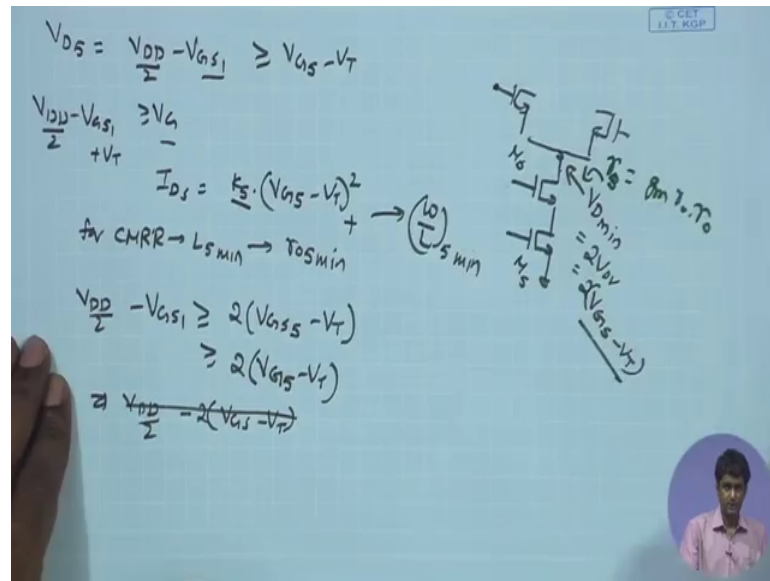 © CET
I.I.T. KGP
V_D5 = V_DD/2 - V_GS1 ≥ V_G5 - V_T
V_DD/2 - V_GS1 + V_T ≥ V_G
I_D5 = K_5 . (V_GS - V_T)^2
+ → (W/L)_5 min
for CMRR → L_5 min → r_o5 min
V_DD/2 - V_GS1 ≥ 2(V_GS5 - V_T)
≥ 2(V_G5 - V_T)
V_DD/2 - 2(V_GS - V_T)
M_6
M_5
= g_m r_o . r_o
V_D min
= 2V_ov
= 2(V_G5 - V_T)